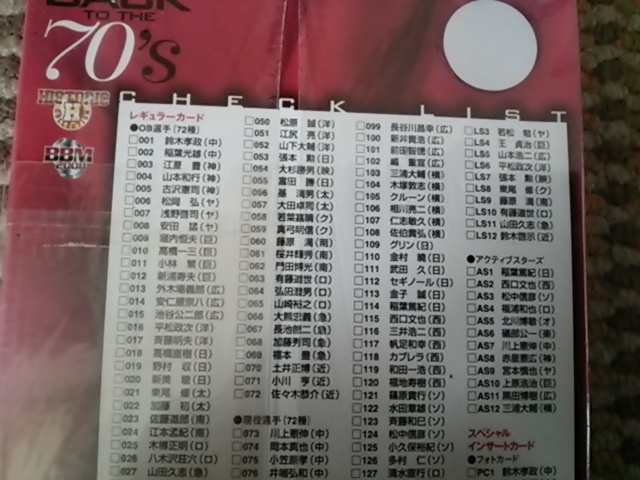 BACK
TO THE
70's
HISTORIC
COLLECTION
BBM
2008
CHECK LIST
レギュラーカード
●OB選手(72種)
□001 鈴木孝政(中)
□002 稲葉光雄(中)
□003 江夏 豊(神)
□004 山本和行(神)
□005 古沢憲司(神)
□006 松岡 弘(ヤ)
□007 浅野啓司(ヤ)
□008 安田 猛(ヤ)
□009 堀内恒夫(巨)
□010 高橋一三(巨)
□011 小林 繁(巨)
□012 新浦寿夫(巨)
□013 外木場義郎(広)
□014 安仁屋宗八(広)
□015 池谷公二郎(広)
□016 平松政次(洋)
□017 斉藤明夫(洋)
□018 高橋直樹(日)
□019 野村 収(日)
□020 新美 敏(日)
□021 東尾 修(太)
□022 加藤 初(太)
□023 佐藤道郎(南)
□024 江本孟紀(南)
□025 木樽正明(ロ)
□026 八木沢荘六(ロ)
□027 山田久志(急)
□050 松原 誠(洋)
□051 江尻 亮(洋)
□052 山下大輔(洋)
□053 張本 勲(日)
□054 大杉勝男(映)
□055 富田 勝(日)
□056 基 満男(太)
□057 大田卓司(太)
□058 若菜嘉晴(ク)
□059 真弓明信(ク)
□060 藤原 満(南)
□061 桜井輝秀(南)
□062 門田博光(南)
□063 有藤道世(ロ)
□064 弘田澄男(ロ)
□065 山崎裕之(ロ)
□066 大熊忠義(急)
□067 長池徳二(急)
□068 加藤秀司(急)
□069 福本 豊(急)
□070 土井正博(近)
□071 小川 亨(近)
□072 佐々木恭介(近)
●現役選手(72種)
□073 川上憲伸(中)
□074 岡本真也(中)
□075 小笠原孝(中)
□076 井端弘和(中)
□099 長谷川昌幸(広)
□100 新井貴浩(広)
□101 前田智徳(広)
□102 嶋 重宣(広)
□103 三浦大輔(横)
□104 木塚敦志(横)
□105 クルーン(横)
□106 相川亮二(横)
□107 仁志敏久(横)
□108 佐伯貴弘(横)
□109 グリン(日)
□110 金村 曉(日)
□111 武田 久(日)
□112 セギノール(日)
□113 金子 誠(日)
□114 稲葉篤紀(日)
□115 西口文也(西)
□116 三井浩二(西)
□117 帆足和幸(西)
□118 カブレラ(西)
□119 和田一浩(西)
□120 福地寿樹(西)
□121 篠原貴行(ソ)
□122 水田章雄(ソ)
□123 斉藤和巳(ソ)
□124 松中信彦(ソ)
□125 小久保裕紀(ソ)
□126 多村 仁(ソ)
□127 清水直行(ロ)
□LS3 若松 勉(ヤ)
□LS4 王 貞治(巨)
□LS5 山本浩二(広)
□LS6 平松政次(洋)
□LS7 張本 勲(映)
□LS8 東尾 修(ク)
□LS9 藤原 満(南)
□LS10 有藤道世(ロ)
□LS11 山田久志(急)
□LS12 鈴木啓示(近)
●アクティブスターズ
□AS1 稲葉篤紀(日)
□AS2 西口文也(西)
□AS3 松中信彦(ソ)
□AS4 福浦和也(ロ)
□AS5 北川博敏(オ)
□AS6 礒部公一(楽)
□AS7 川上憲伸(中)
□AS8 赤星憲広(神)
□AS9 宮本慎也(ヤ)
□AS10 上原浩治(巨)
□AS11 黒田博樹(広)
□AS12 三浦大輔(横)
スペシャル
インサートカード
●フォトカード
□PC1 鈴木孝政(中)